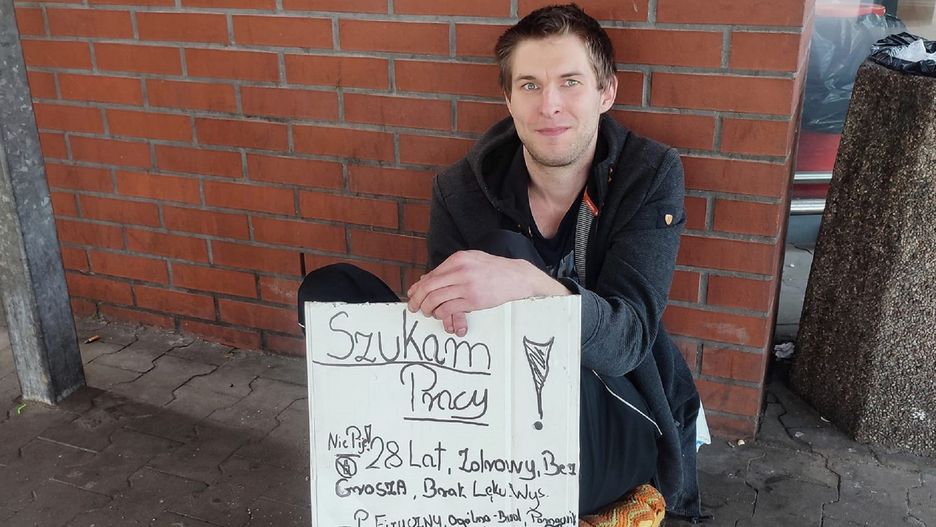 Szukam
Pracy !
Nie Piję!
28 Lat, Zdrowy, Bez
Grosza, Brak Lęku Wys.
P. Fizyczny, Ogólno-Bud,